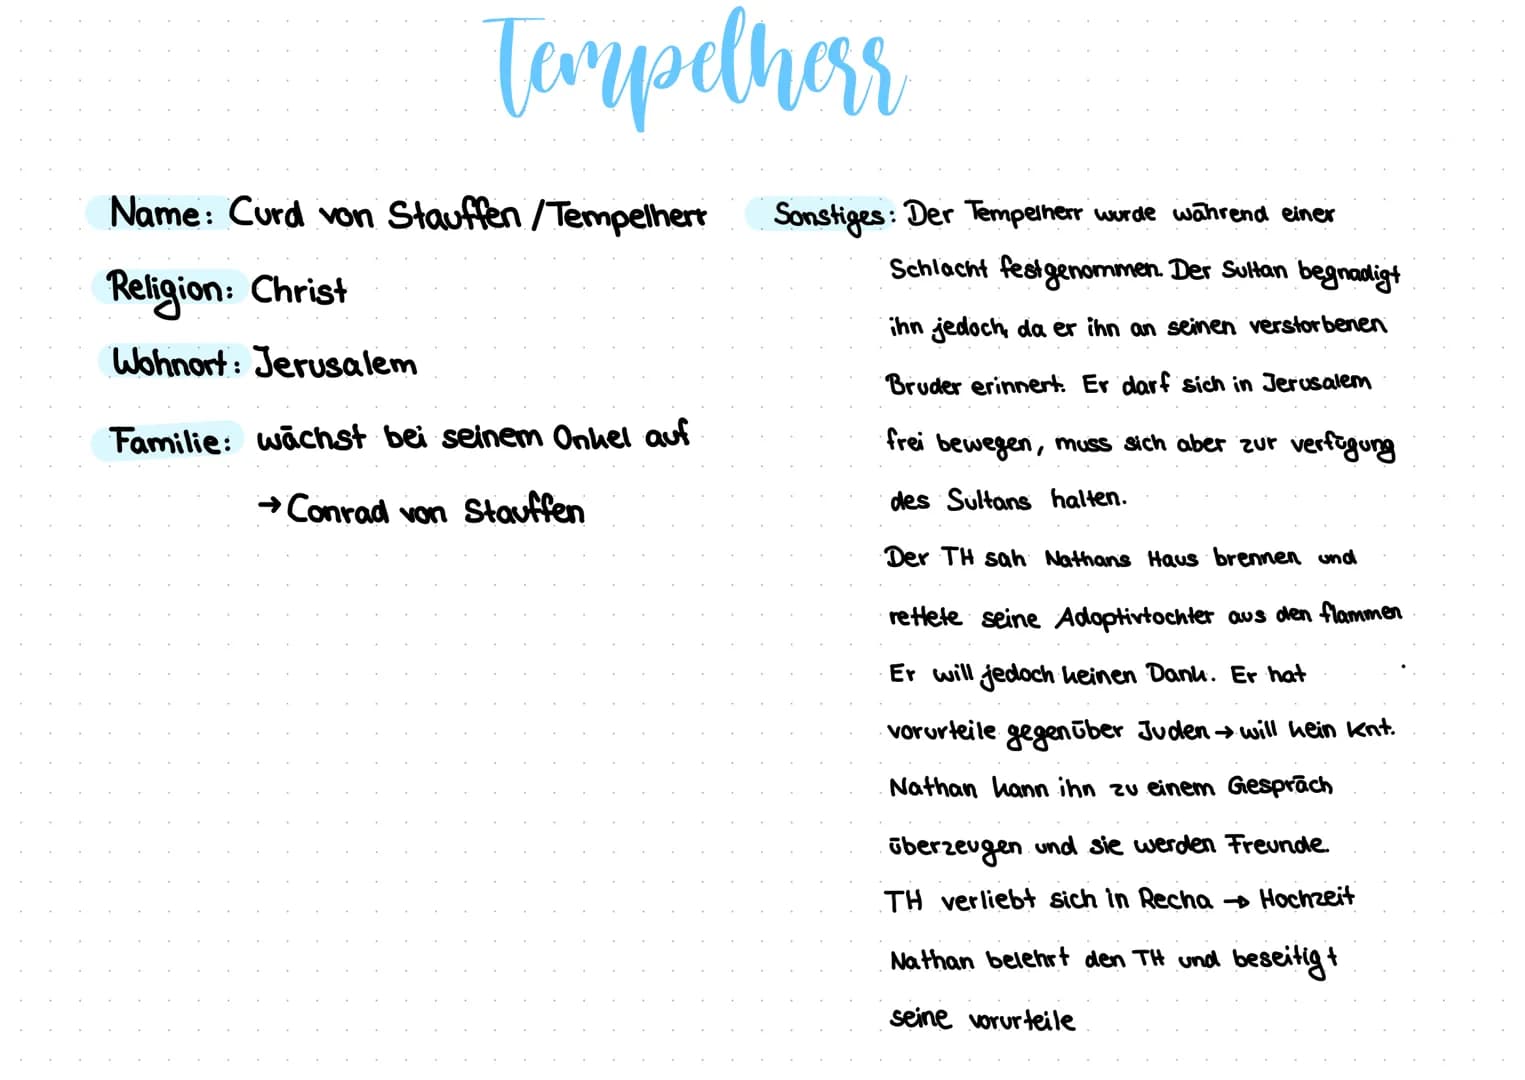 Tempelherr
Name: Curd von Stauffen / Tempelherr
Religion: Christ
Wohnort: Jerusalem
Familie: wächst bei seinem Onkel auf
→ Conrad von Stauffen
Sonstiges: Der Tempelherr wurde während einer
Schlacht festgenommen. Der Sultan begnadigt
ihn jedoch, da er ihn an seinen verstorbenen
Bruder erinnert. Er darf sich in Jerusalem
frei bewegen, muss sich aber zur verfügung
des Sultans halten.
Der TH sah Nathans Haus brennen und
rettete seine Adoptivtochter aus den flammen
Er will jedoch keinen Dank. Er hat
vorurteile gegenüber Juden → will kein Knt.
Nathan kann ihn zu einem Gespräch
überzeugen und sie werden Freunde.
TH verliebt sich in Recha → Hochzeit
Nathan belehrt den TH und beseitigt
seine vorurteile